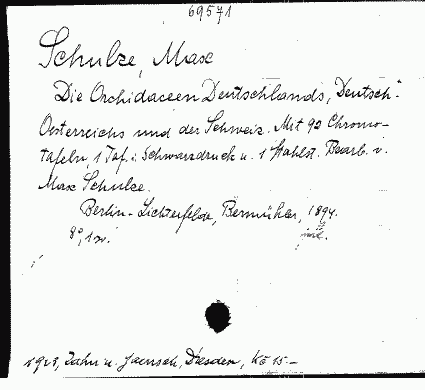 69571
Schulze, Max
Die Orchidaceen Deutschlands, Deutsch-
Oesterreichs und der Schweiz. Mit 92 Chromo-
tafeln, 1 Taf. i. Schwarzdruck u. 1 Stahlst. Bearb. v.
Max Schulze.
Berlin-Lichterfelde, Bermühler, 1894.
8°, 1 v.
1923, Zahn u. Jaensch, Dresden, Kč 15.-